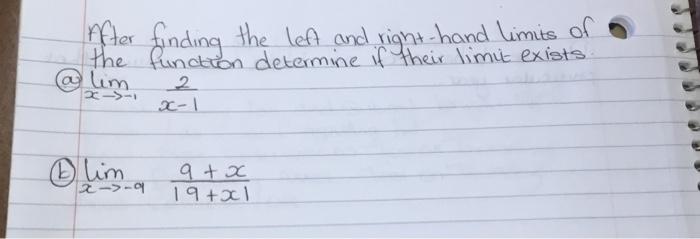 After finding the left and right-hand limits of
the function determine if their limit exists.
(a) lim x->-1 2/(x-1)
(b) lim x->-9 (9+x)/|9+x|